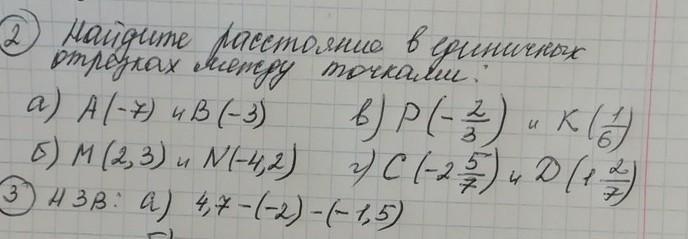 ② Найдите расстояние в единичных
отрезках между точками:
а) A(-7) и B(-3) в) P(-2/3) и K(1/6)
б) M(2,3) и N(-4,2) г) C(-2 5/7) и D(1 2/7)
③ НЗВ: а) 4,7-(-2)-(-1,5)